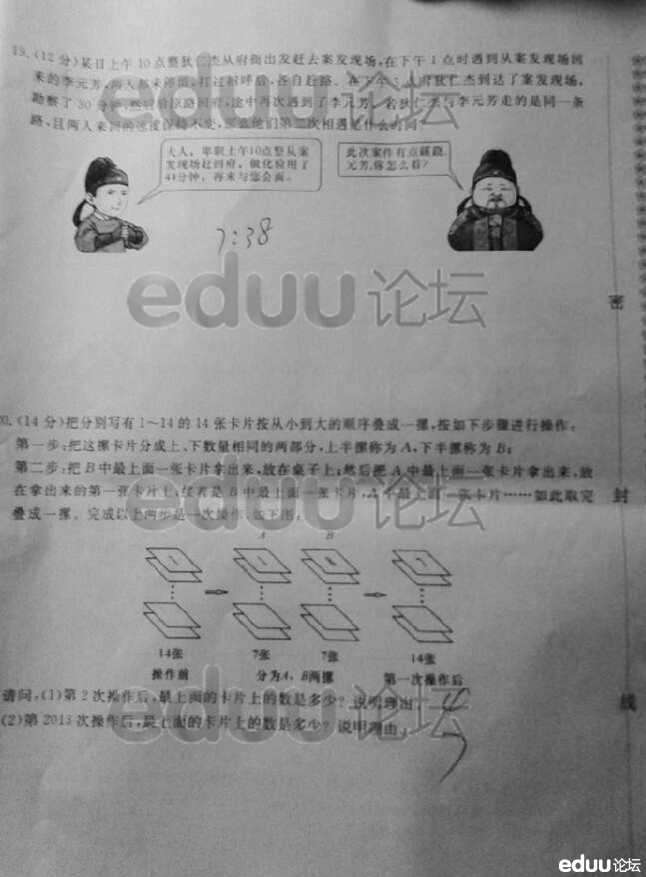 19.(12分)某日上午10点整狄仁杰从府衙出发赶去案发现场,在下午1点时遇到从案发现场回
来的李元芳,两人都未停留,打过招呼后,各自赶路。在下午 狄仁杰到达了案发现场,
勘察了30分钟,然后沿原路回府,途中再次遇到了李元芳。若狄仁杰与李元芳走的是同一条
路,且两人来回的速度保持不变,那么他们第二次相遇是什么时间?
大人,卑职上午10点整从案
发现场赶回府,做化验用了
44分钟,再来与您会面。
此次案件有点蹊跷,
元芳,你怎么看?
7:38
eduu论坛
密
20.(14分)把分别写有1~14的14张卡片按从小到大的顺序叠成一摞,按如下步骤进行操作:
第一步:把这摞卡片分成上、下数量相同的两部分,上半摞称为A,下半摞称为B;
第二步:把B中最上面一张卡片拿出来,放在桌子上;然后把A中最上面一张卡片拿出来,放
在拿出来的第一张卡片上;接着是B中最上面一张卡片,A中最上面一张卡片……如此取完
叠成一摞。完成以上两步是一次操作,如下图:
封
eduu论坛
A B
1 1 8
14张 7张 7张 14张
操作前 分为A、B两摞 第一次操作后
请问,(1)第2次操作后,最上面的卡片上的数是多少?说明理由。
(2)第2013次操作后,最上面的卡片上的数是多少?说明理由。
线
eduu论坛
eduu论坛